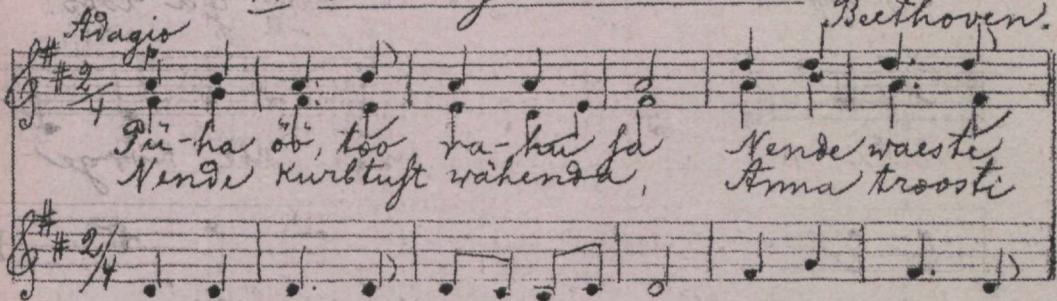 Adagio
Beethoven.
2/4
Pü-ha öö, too ra-hu sa Nende waeste
Nende kurbtust wähenda, Anna troosti
2/4